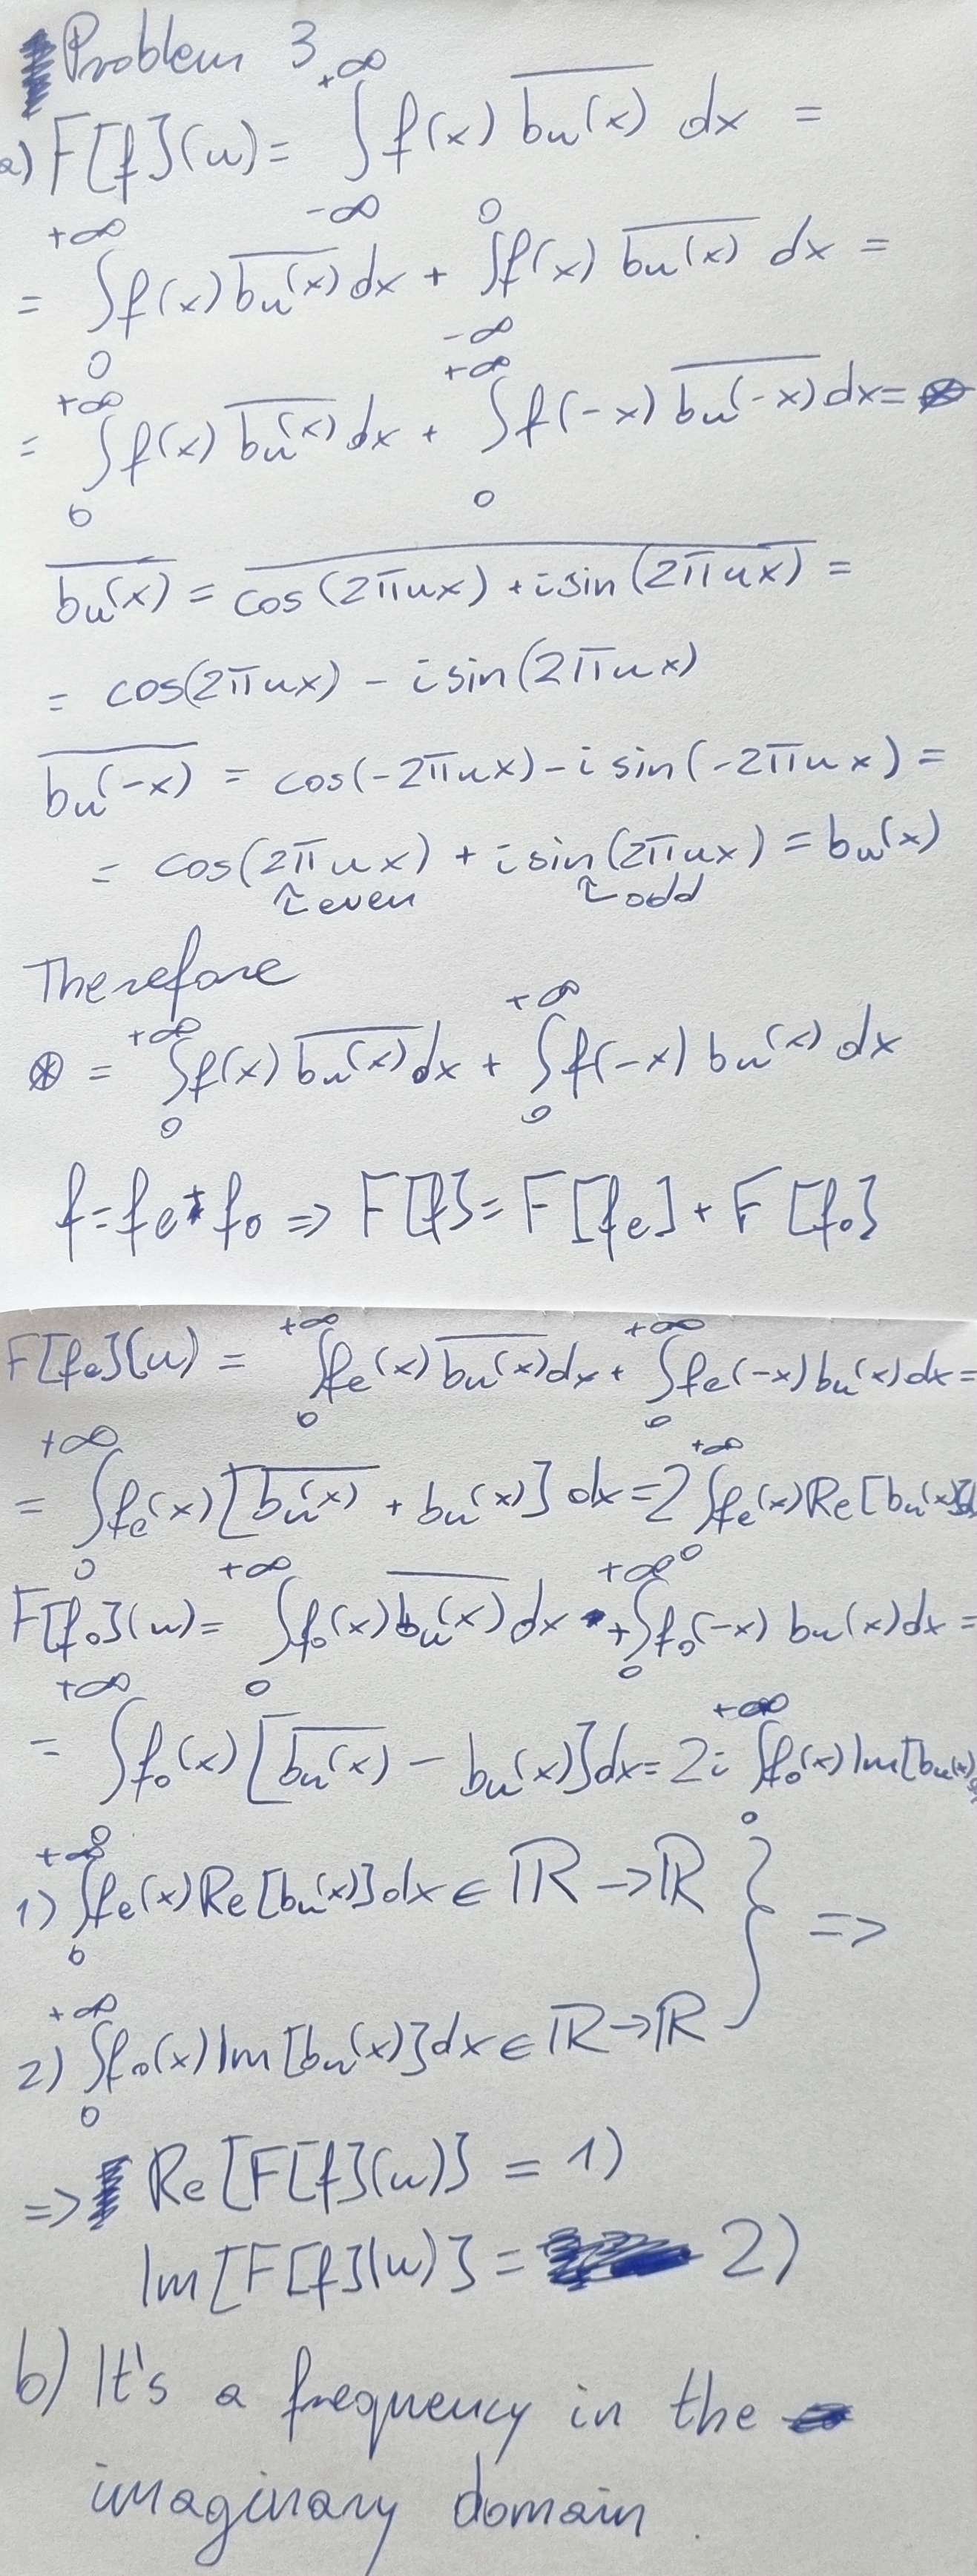 Problem 3
a) F[f](u) = ∫_{-∞}^{+∞} f(x) \overline{b_u(x)} dx =
= ∫_0^{+∞} f(x) \overline{b_u(x)} dx + ∫_{-∞}^0 f(x) \overline{b_u(x)} dx =
= ∫_0^{+∞} f(x) \overline{b_u(x)} dx + ∫_0^{+∞} f(-x) \overline{b_u(-x)} dx = ⊛
\overline{b_u(x)} = \overline{cos(2πux) + i sin(2πux)} =
= cos(2πux) - i sin(2πux)
\overline{b_u(-x)} = cos(-2πux) - i sin(-2πux) =
= cos(2πux) + i sin(2πux) = b_u(x)
even odd
Therefore
⊛ = ∫_0^{+∞} f(x) \overline{b_u(x)} dx + ∫_0^{+∞} f(-x) b_u(x) dx
f = f_e + f_o => F[f] = F[f_e] + F[f_o]
F[f_e](u) = ∫_0^{+∞} f_e(x) \overline{b_u(x)} dx + ∫_0^{+∞} f_e(-x) b_u(x) dx =
= ∫_0^{+∞} f_e(x) [\overline{b_u(x)} + b_u(x)] dx = 2 ∫_0^{+∞} f_e(x) Re[b_u(x)]d
F[f_o](u) = ∫_0^{+∞} f_o(x) \overline{b_u(x)} dx + ∫_0^{+∞} f_o(-x) b_u(x) dx =
= ∫_0^{+∞} f_o(x) [\overline{b_u(x)} - b_u(x)] dx = 2i ∫_0^{+∞} f_o(x) Im[b_u(x)
1) ∫_0^{+∞} f_e(x) Re[b_u(x)] dx ∈ ℝ → ℝ } =>
2) ∫_0^{+∞} f_o(x) Im[b_u(x)] dx ∈ ℝ → ℝ
=> Re[F[f](u)] = 1)
Im[F[f](u)] = 2)
b) It's a frequency in the
imaginary domain.